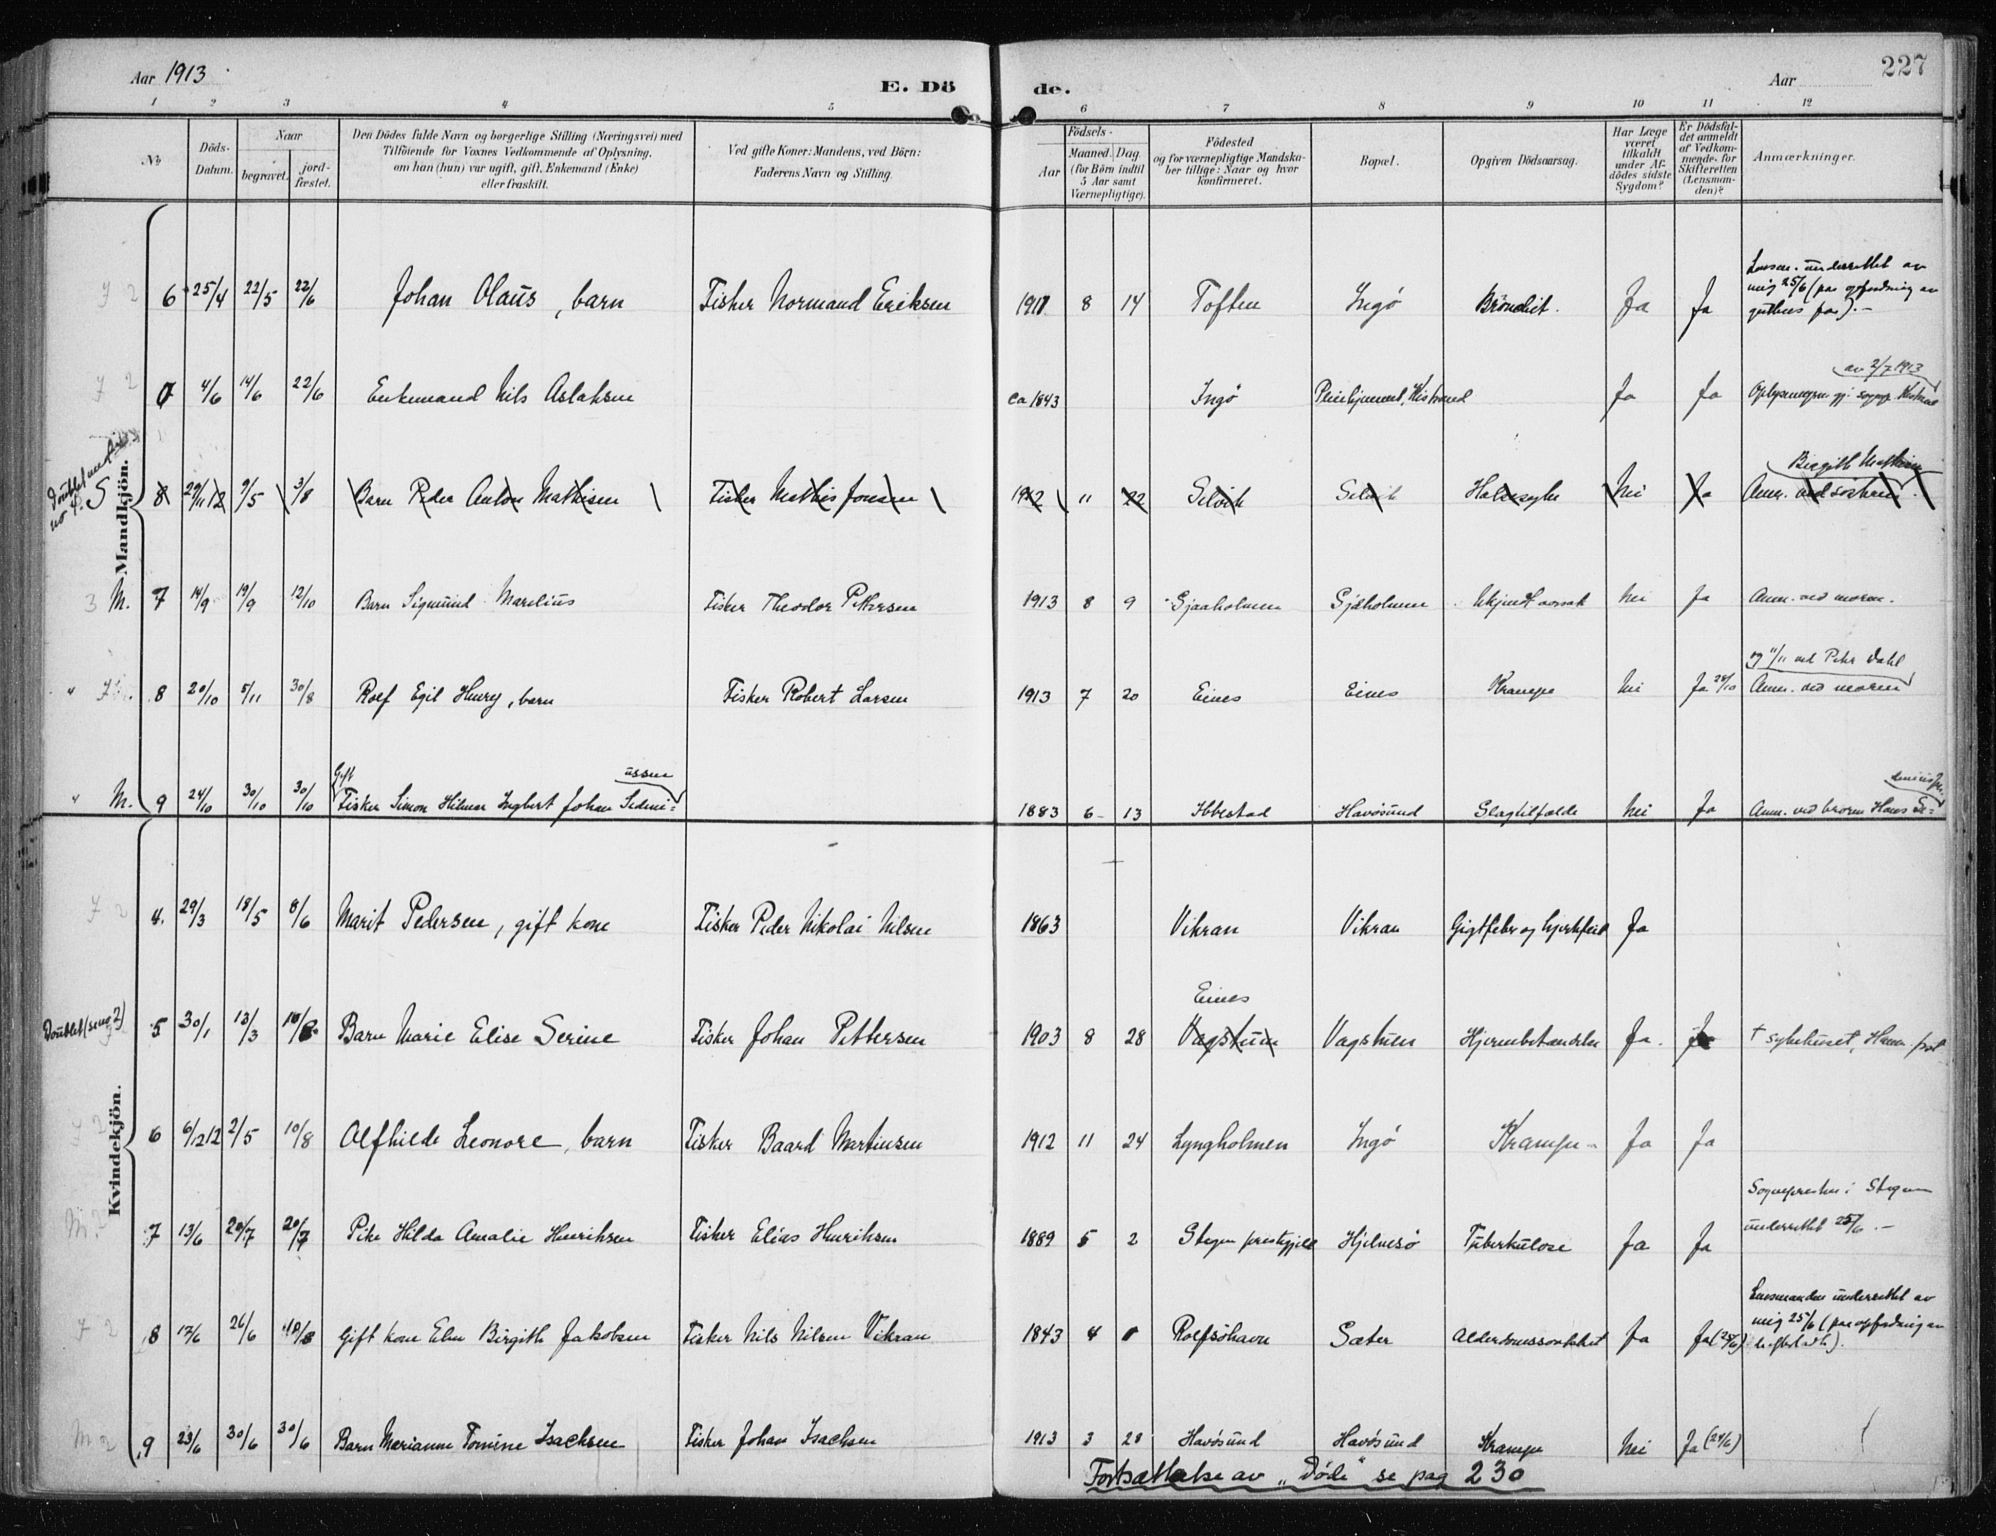 Aar 1913
E. Dö
de.
Aar
227
1 2 3 4 5 6 7 8 9 10 11 12
No
Döds-Datum.
Naar
begravet.
jord-fæstet.
Den Dödes fulde Navn og borgerlige Stilling (Næringsvei) med
Tilföiende for Voxnes Vedkommende af Oplysning,
om han (hun) var ugift, gift, Enkemand (Enke)
eller fraskilt.
Ved gifte Koner: Mandens, ved Börn:
Faderens Navn og Stilling.
Födsels-
Aar
Maaned. Dag
(for Börn indtil
5 Aar samt
Værnepligtige).
Födested
og for værnepligtige Mandska-
ber tillige: Naar og hvor
konfirmeret.
Bopæl.
Opgiven Dödsaarsag.
Har Læge
været
tilkaldt
under Af-
dödes sidste
Sygdom?
Er Dödsfal-
det anmeldt
af Vedkom-
mende for
Skifteretten
(Lensman-
den)?
Anmærkninger.
Mandkjön.
6 25/4 22/5 22/6 Johan Olaus, barn Fisker Normand Eriksen 1911 8 14 Toften Ingø Ja Ja
underrettet av
mig 25/6 (paa opfordning av
av 2/7 1913
7 4/6 14/6 22/6 Enkemand Nils Aslaksen ca 1843 Ingø Ja Ja
Doublet
no 4. S
Birgith Mathisen
8 29/11 12 9/5 3/8 Barn Peder Anton Mathisen Fisker Mathis Jonsen 1912 11 22 Selvik Selvik Halssyke Nei Ja Anm. ved søsteren
M. 7 14/9 19/9 12/10 Barn Sigmund Marelius Fisker Theodor Pettersen 1913 8 9 Gjaaholmen Gjåholmen Ukjend aarsak Nei Ja Anm. ved moren.
og 11/11 ved Petr Dahl
" 8 20/10 5/11 30/8 Rolf Egil Henry, barn Fisker Robert Larsen 1913 7 20 Eines Eines Krampe Nei Ja 28/10 Anm. ved moren
Gift
ussen
" M. 9 24/10 30/10 30/10 Fisker Simon Hilmar Ingbert Johan Sedeni= 1883 6 13 Ibbestad Havøsund Slagtilfælde Nei Ja Anm. ved broren Hans Se=
Kvindekjön.
4. 29/3 18/5 8/6 Marit Pedersen, gift kone Fisker Peder Nikolai Nilsen 1863 Vikran Vikran Gigtfeber og hjertefeil Ja
Eines
Doublet (se no 2) 5 30/1 13/3 Barn Marie Elise Serine Fisker Johan Pettersen 1903 8 28 Vagstuen Vagstuen Hjernebetændelse Ja. Ja † sykehuset, Ham
6 6/12 12 2/5 10/8 Alfhilde Leonore, barn Fisker Baard Martinsen 1912 11 24 Lyngholmen Ingø Krampe Ja Ja
7 13/6 20/7 20/7 Pike Hilda Amalie Henriksen Fisker Elias Henriksen 1889 5 2 Stegen prestegjeld Hjelmsø Tuberkulose Ja Ja
Sognepresten i Stegen
underrettet 25/6.—
8 17/6 26/6 Gift kone Elen Birgith Jakobsen Fisker Nils Nilsen Vikran 1843 4 Rolfsøhavn Sæter Alderdomssvakhet Ja Ja
Lensmanden underrettet av
mig 25/6 (paa opfordning av
9 23/6 30/6 30/6 Barn Marianne Tomine Isachsen Fisker Johan Isachsen 1913 3 28 Havøsund Havøsund Krampe Nei Ja (24/6)
Fortsættelse av „Døde" se pag 230